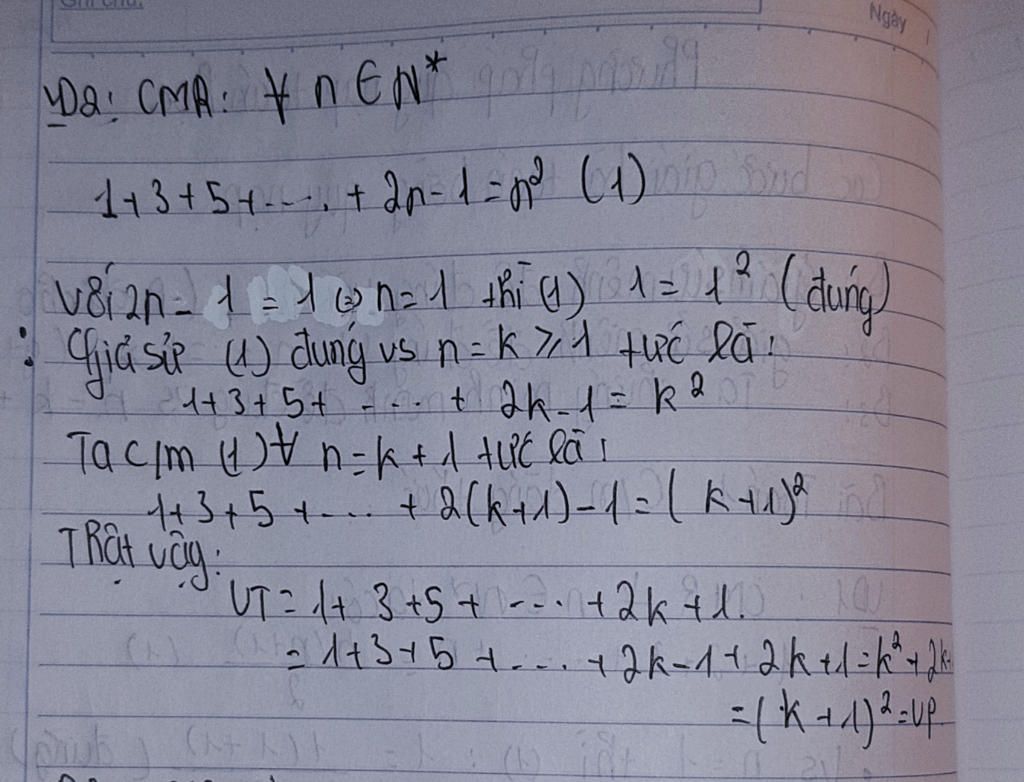 Ngày
VD2: CMR: ∀ n ∈ N*
1+3+5+.....+ 2n-1 = n² (1)
Với 2n-1 = 1 ⇔ n=1 thì (1) 1 = 1² (đúng)
Giả sử (1) đúng vs n = k ⩾ 1 tức là:
1+3+5+ ..... + 2k-1 = k²
Ta c/m (1) ∀ n = k+1 tức là:
1+3+5 +..... + 2(k+1)-1 = (k+1)²
Thật vậy:
VT = 1+ 3+5+ ..... +2k+1.
= 1+3+5 +..... + 2k-1+ 2k+1 = k²+2k+
= (k+1)² = VP